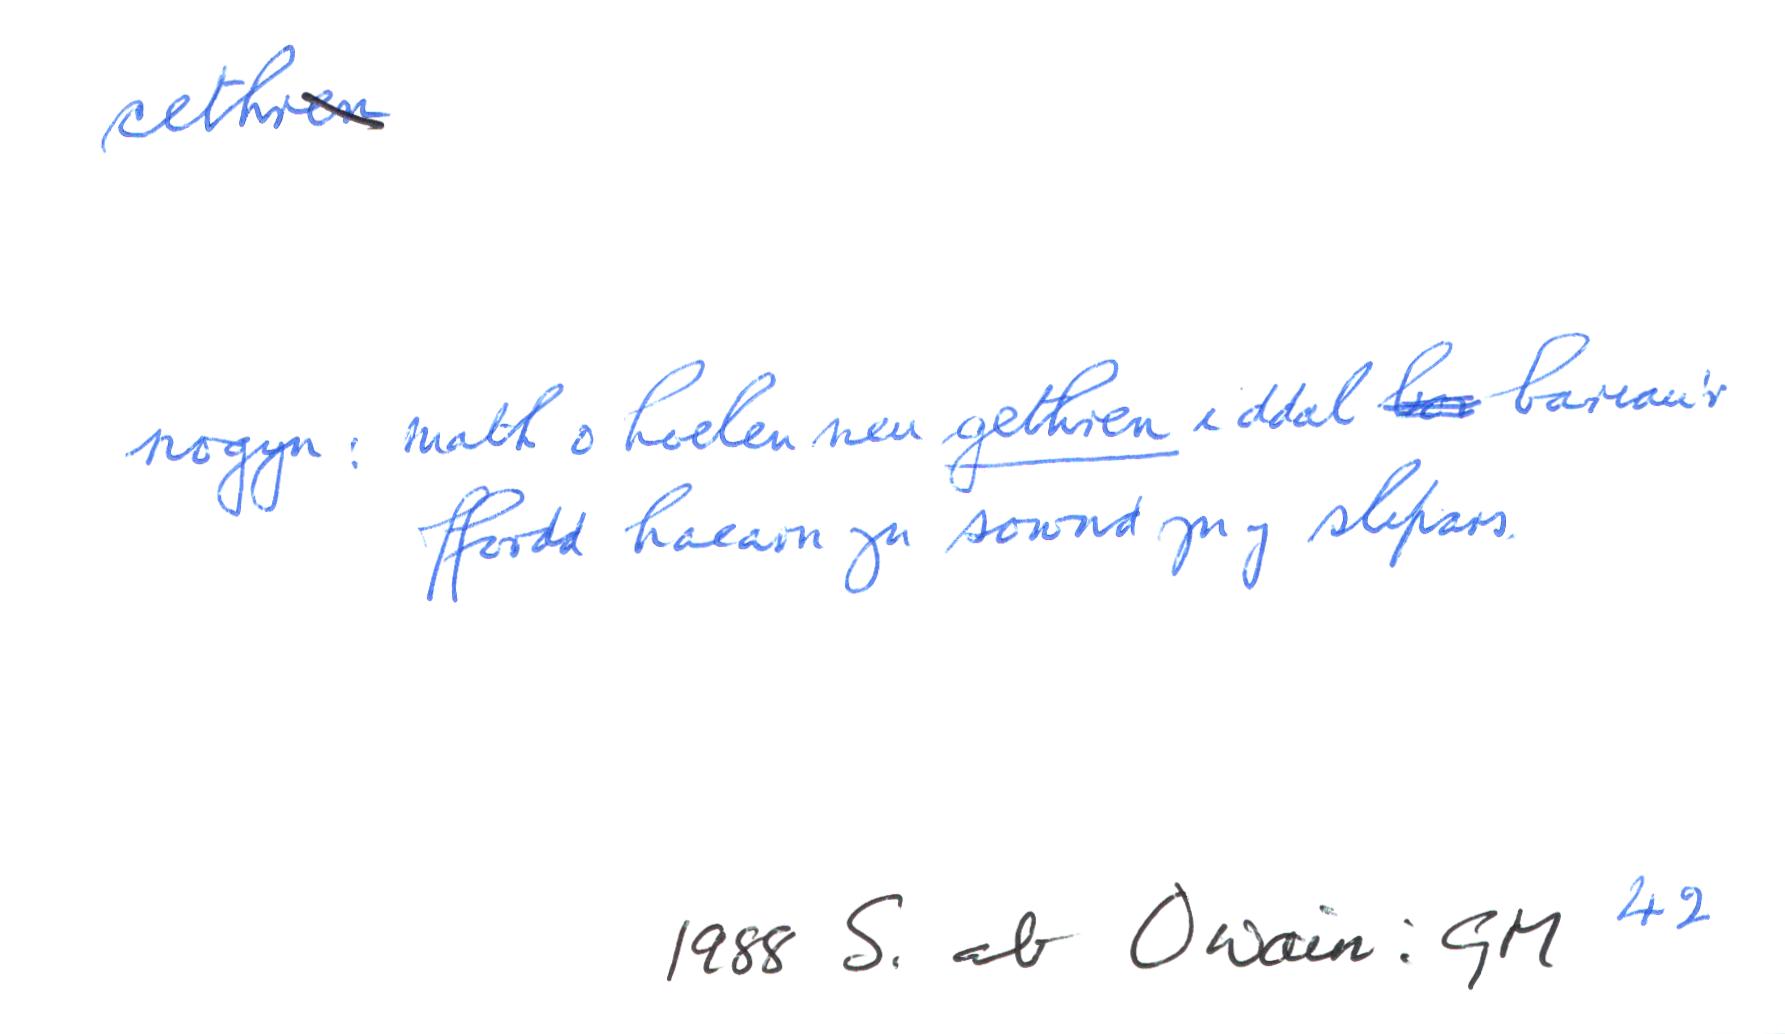 cethren
nogyn: math o hoelen neu gethren i ddal barrau'r
ffordd haearn yn sownd yn y slipars.
1988 S. ab Owain: GM 42